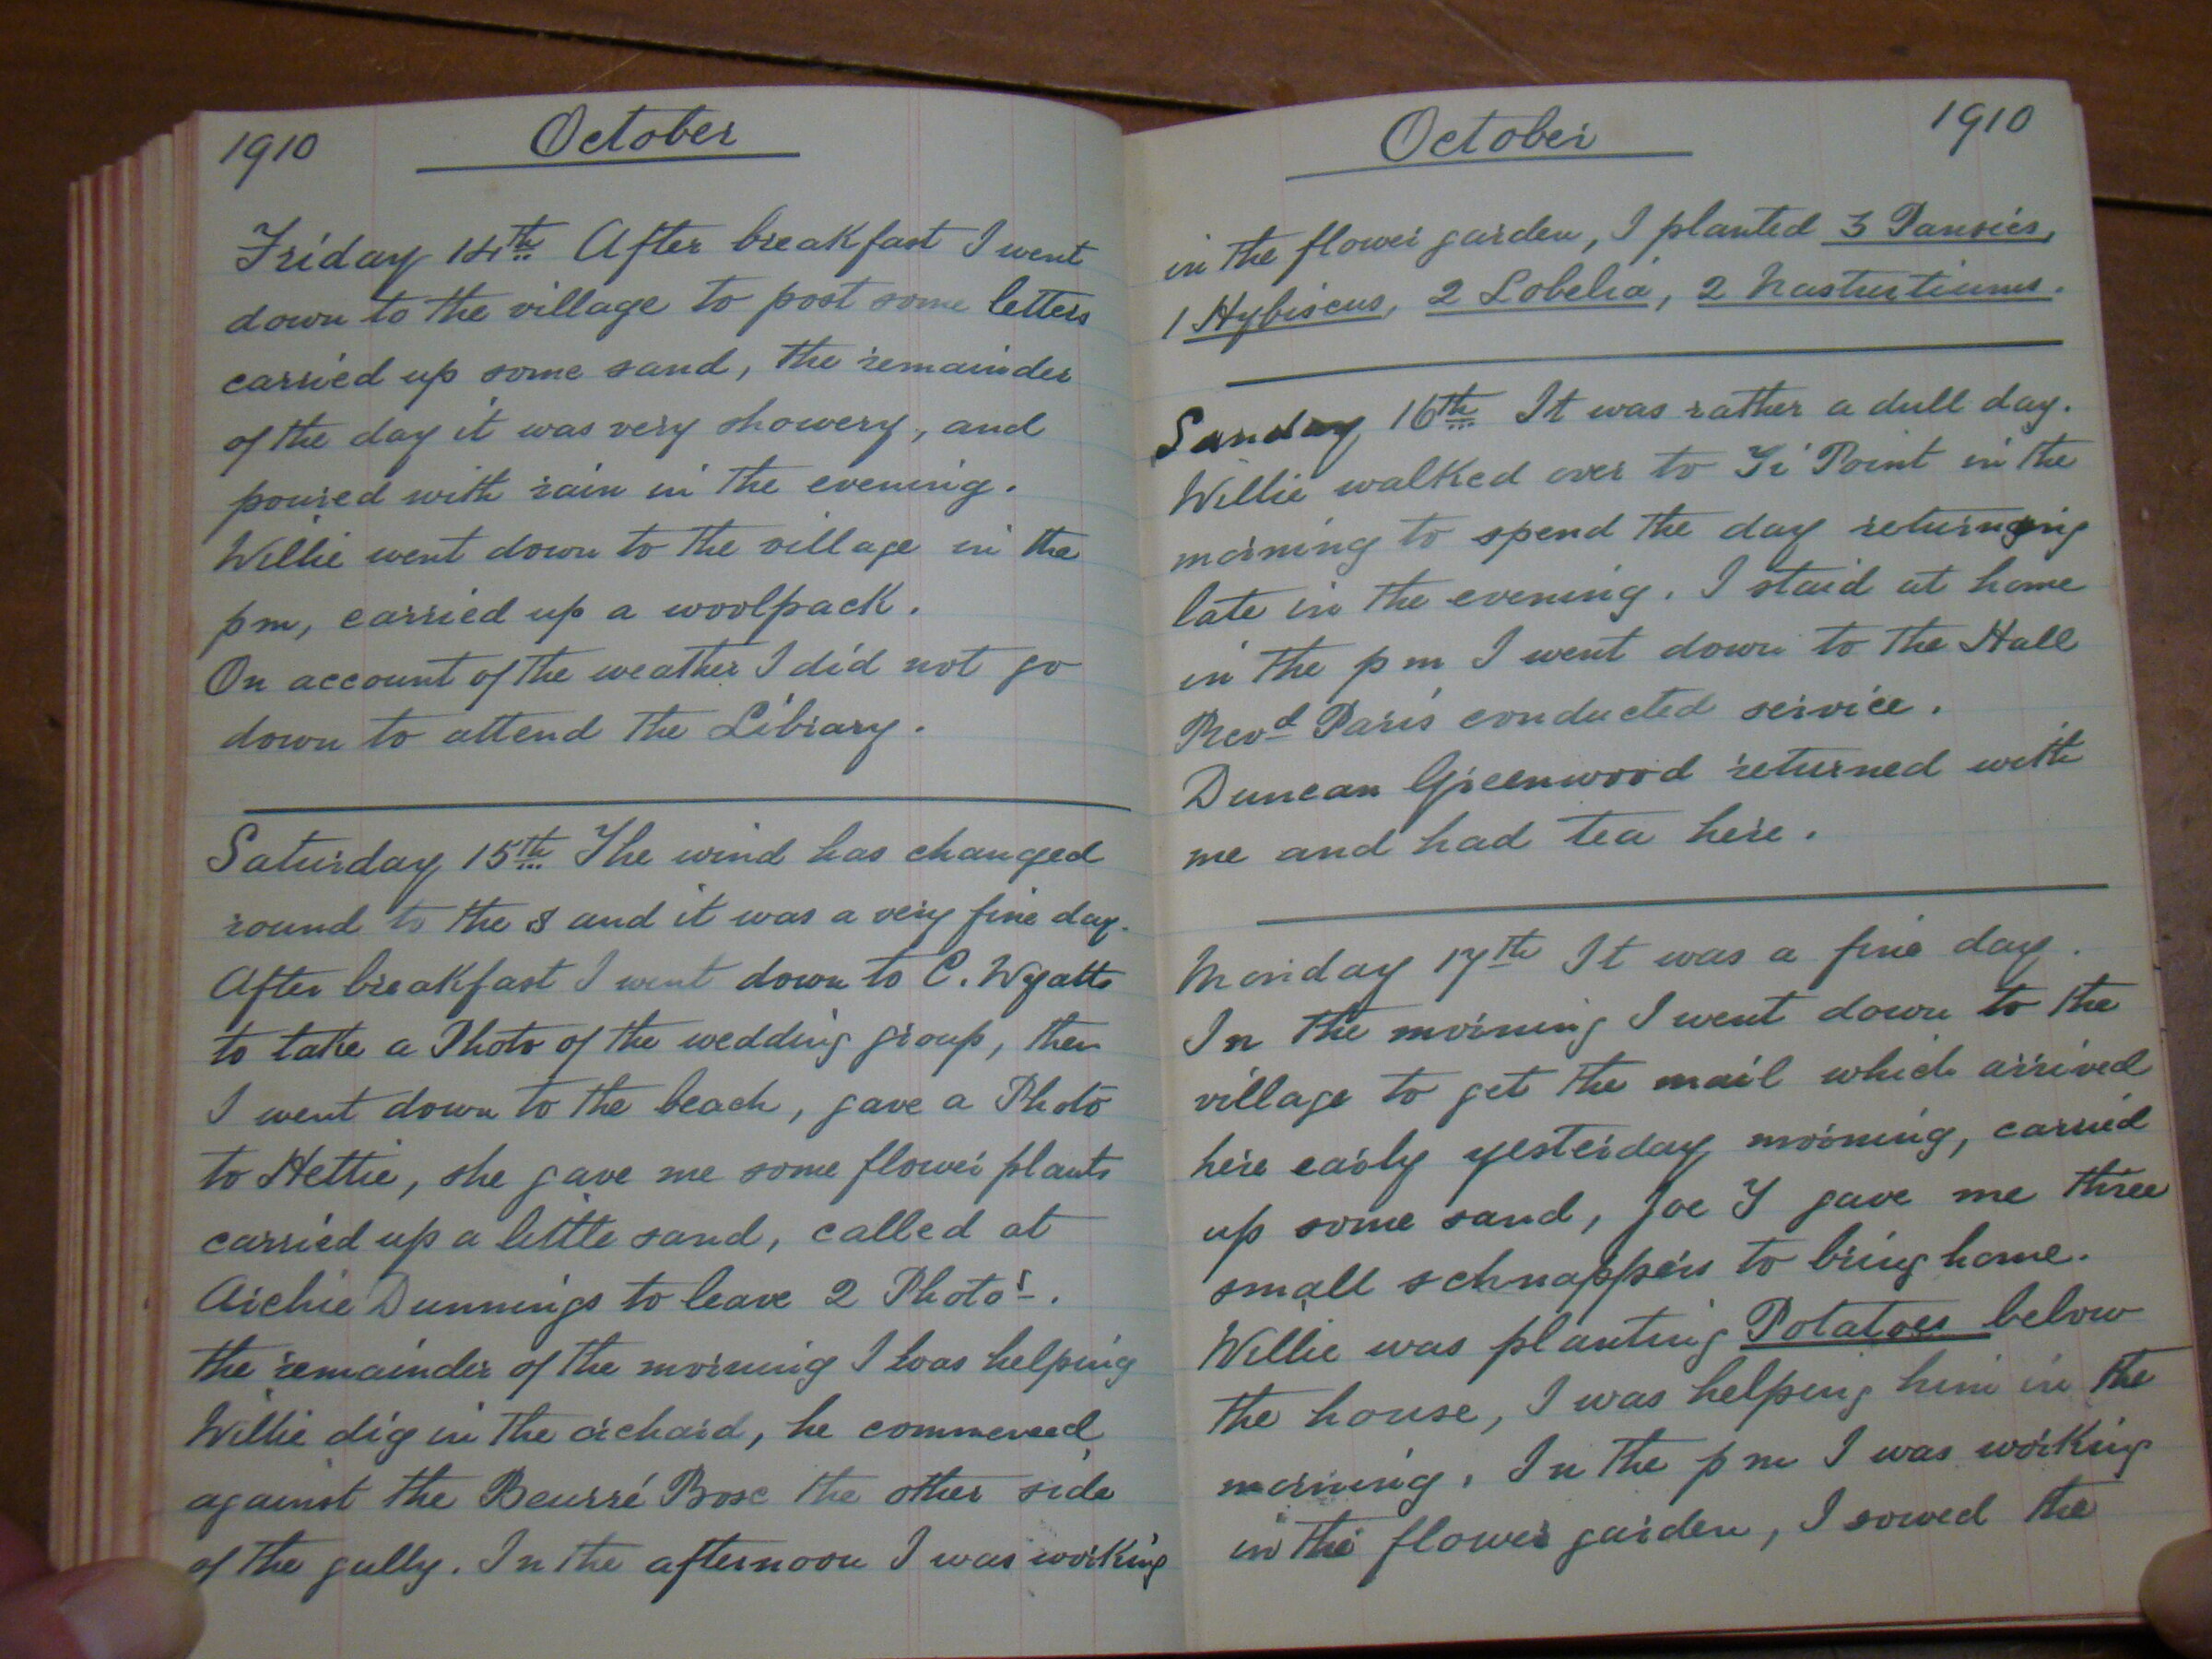 1910 October
Friday 14th After breakfast I went
down to the village to post some letters
carried up some sand, the remainder
of the day it was very showery, and
poured with rain in the evening.
Willie went down to the village in the
pm, carried up a woolpack.
On account of the weather I did not go
down to attend the Library.
Saturday 15th The wind has changed
round to the S and it was a very fine day.
After breakfast I went down to C. Wyatts
to take a Photo of the wedding group, then
I went down to the beach, gave a Photo
to Hettie, she gave me some flower plants
carried up a little sand, called at
Archie Dunnings to leave 2 Photos.
the remainder of the morning I was helping
Willie dig in the orchard, he commenced
against the Beurré Bosc the other side
of the gully. In the afternoon I was working
October 1910
in the flower garden, I planted 3 Pansies,
1 Hybiscus, 2 Lobelia, 2 Nasturtiums.
Sunday 16th It was rather a dull day.
Willie walked over to Ti Point in the
morning to spend the day returning
late in the evening. I staid at home
in the pm I went down to the Hall
Revd Paris conducted service.
Duncan Greenwood returned with
me and had tea here.
Monday 17th It was a fine day.
In the morning I went down to the
village to get the mail which arrived
here early yesterday morning, carried
up some sand, Joe Y gave me three
small schnappers to bring home.
Willie was planting Potatoes below
the house, I was helping him in the
morning. In the pm I was working
in the flower garden, I sowed the